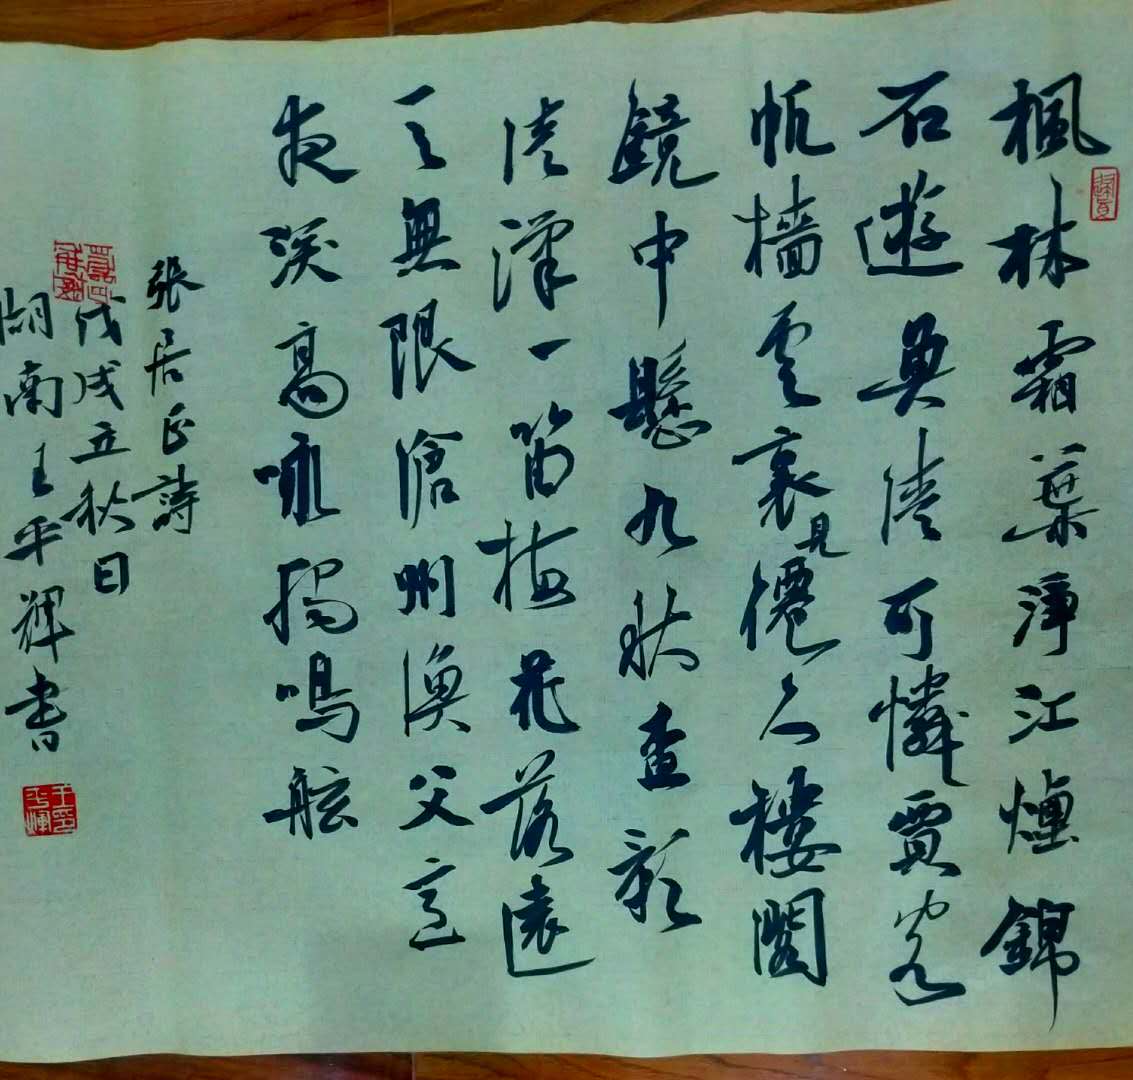 楓林霜葉淨江煙錦
石遊魚清可憐賈客
帆檣雲裏見僊人樓閣
鏡中懸九秋查影
清漢一笛梅花落遠
天無限滄州漁父意
夜深高咏獨鳴舷
張居正詩
戊戌立秋日
湖南王平輝書